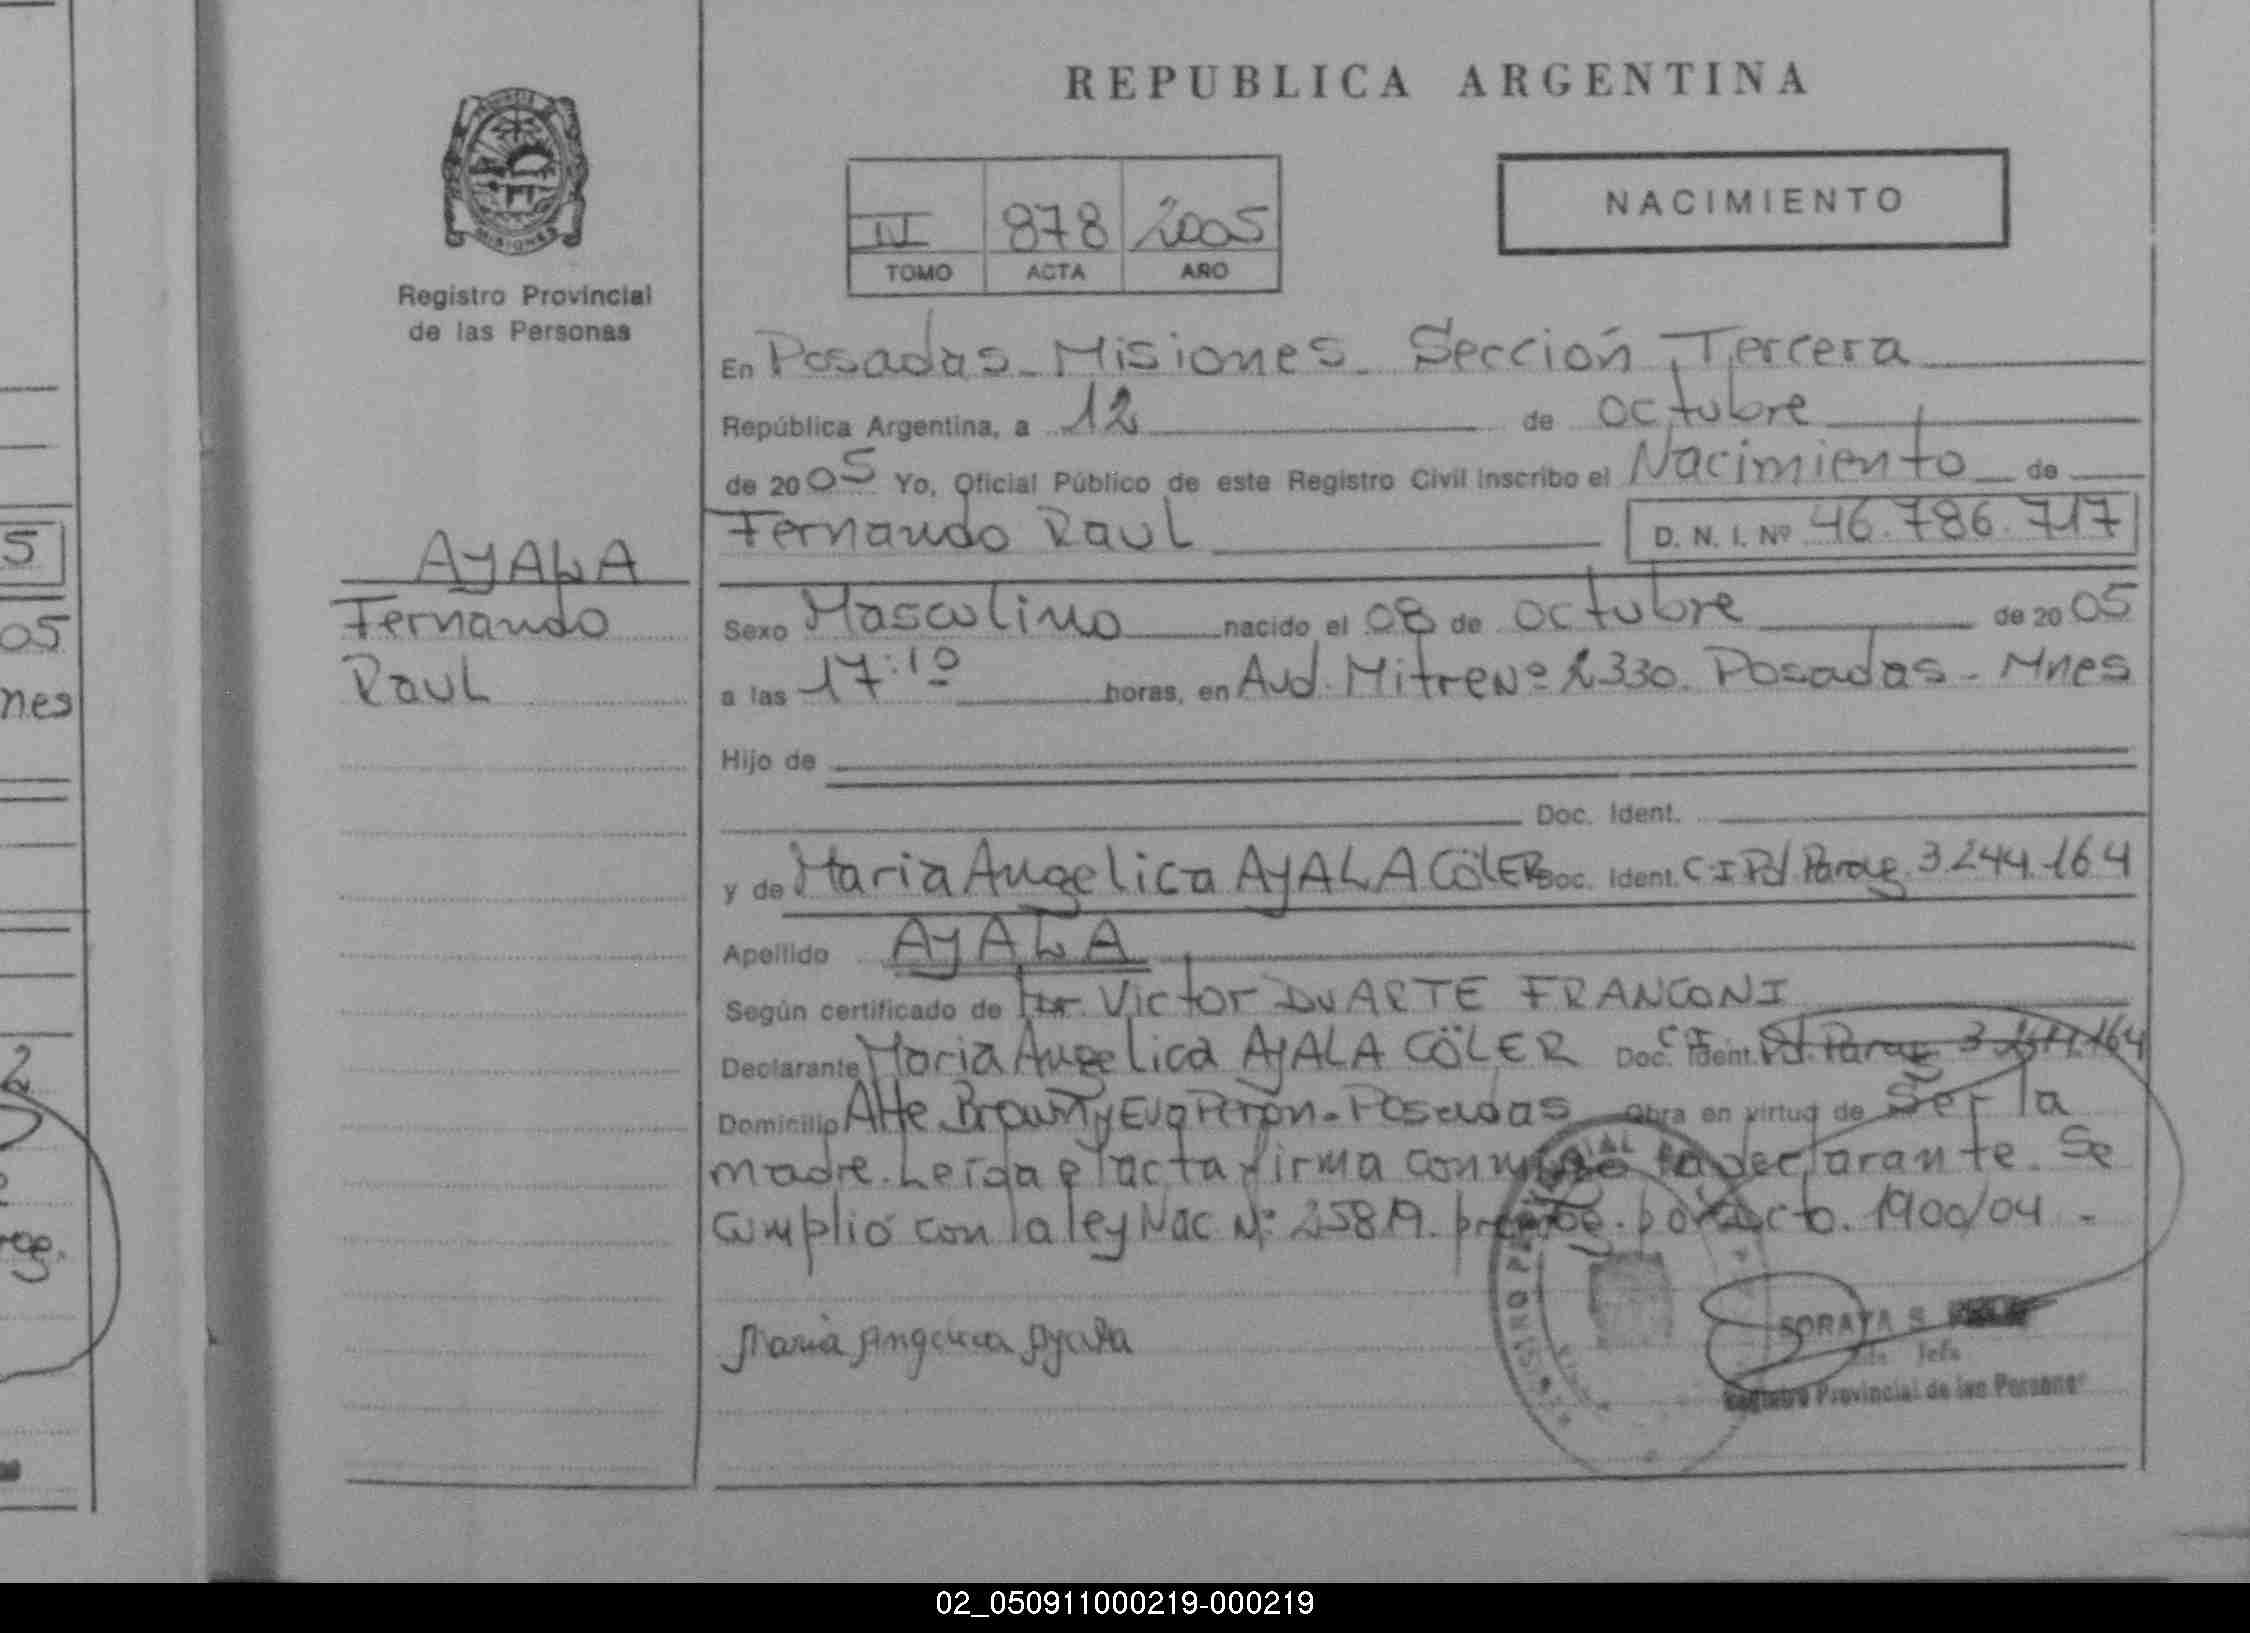 REPUBLICA ARGENTINA
NACIMIENTO
878 2005
TOMO ACTA AÑO
MISIONES
Registro Provincial
de las Personas
En Posadas - Misiones - Sección Tercera
República Argentina, a 12 de octubre
de 2005 Yo, Oficial Público de este Registro Civil inscribo el Nacimiento de
Fernando Raul D. N. I. Nº 46.786.717
AYALA
Fernando
Raul
Sexo Masculino nacido el 08 de octubre de 2005
a las 17:10 horas, en Avd. Mitre Nº 2330. Posadas - Mnes
Hijo de
Doc. Ident.
y de Maria Angelica AYALA CÖLER Doc. Ident. C I Pol. Parag. 3.244.164
Apellido AYALA
Según certificado de Victor DUARTE FRANCONI
Declarante Maria Angelica AYALA CÖLER Doc. Ident. C I Pol. Parag. 3.244.164
Domicilio Alte. Brown y Eva Peron - Posadas Obra en virtud de Ser la
madre. Leída el acta firma conmigo la declarante. Se
cumplió con la ley Nac. Nº 25819. por Dcto. 1900/04 -
Maria Angelica Ayala
SORAYA S.
Jefa
Registro Provincial de las Personas
5
05
nes
2
02_050911000219-000219